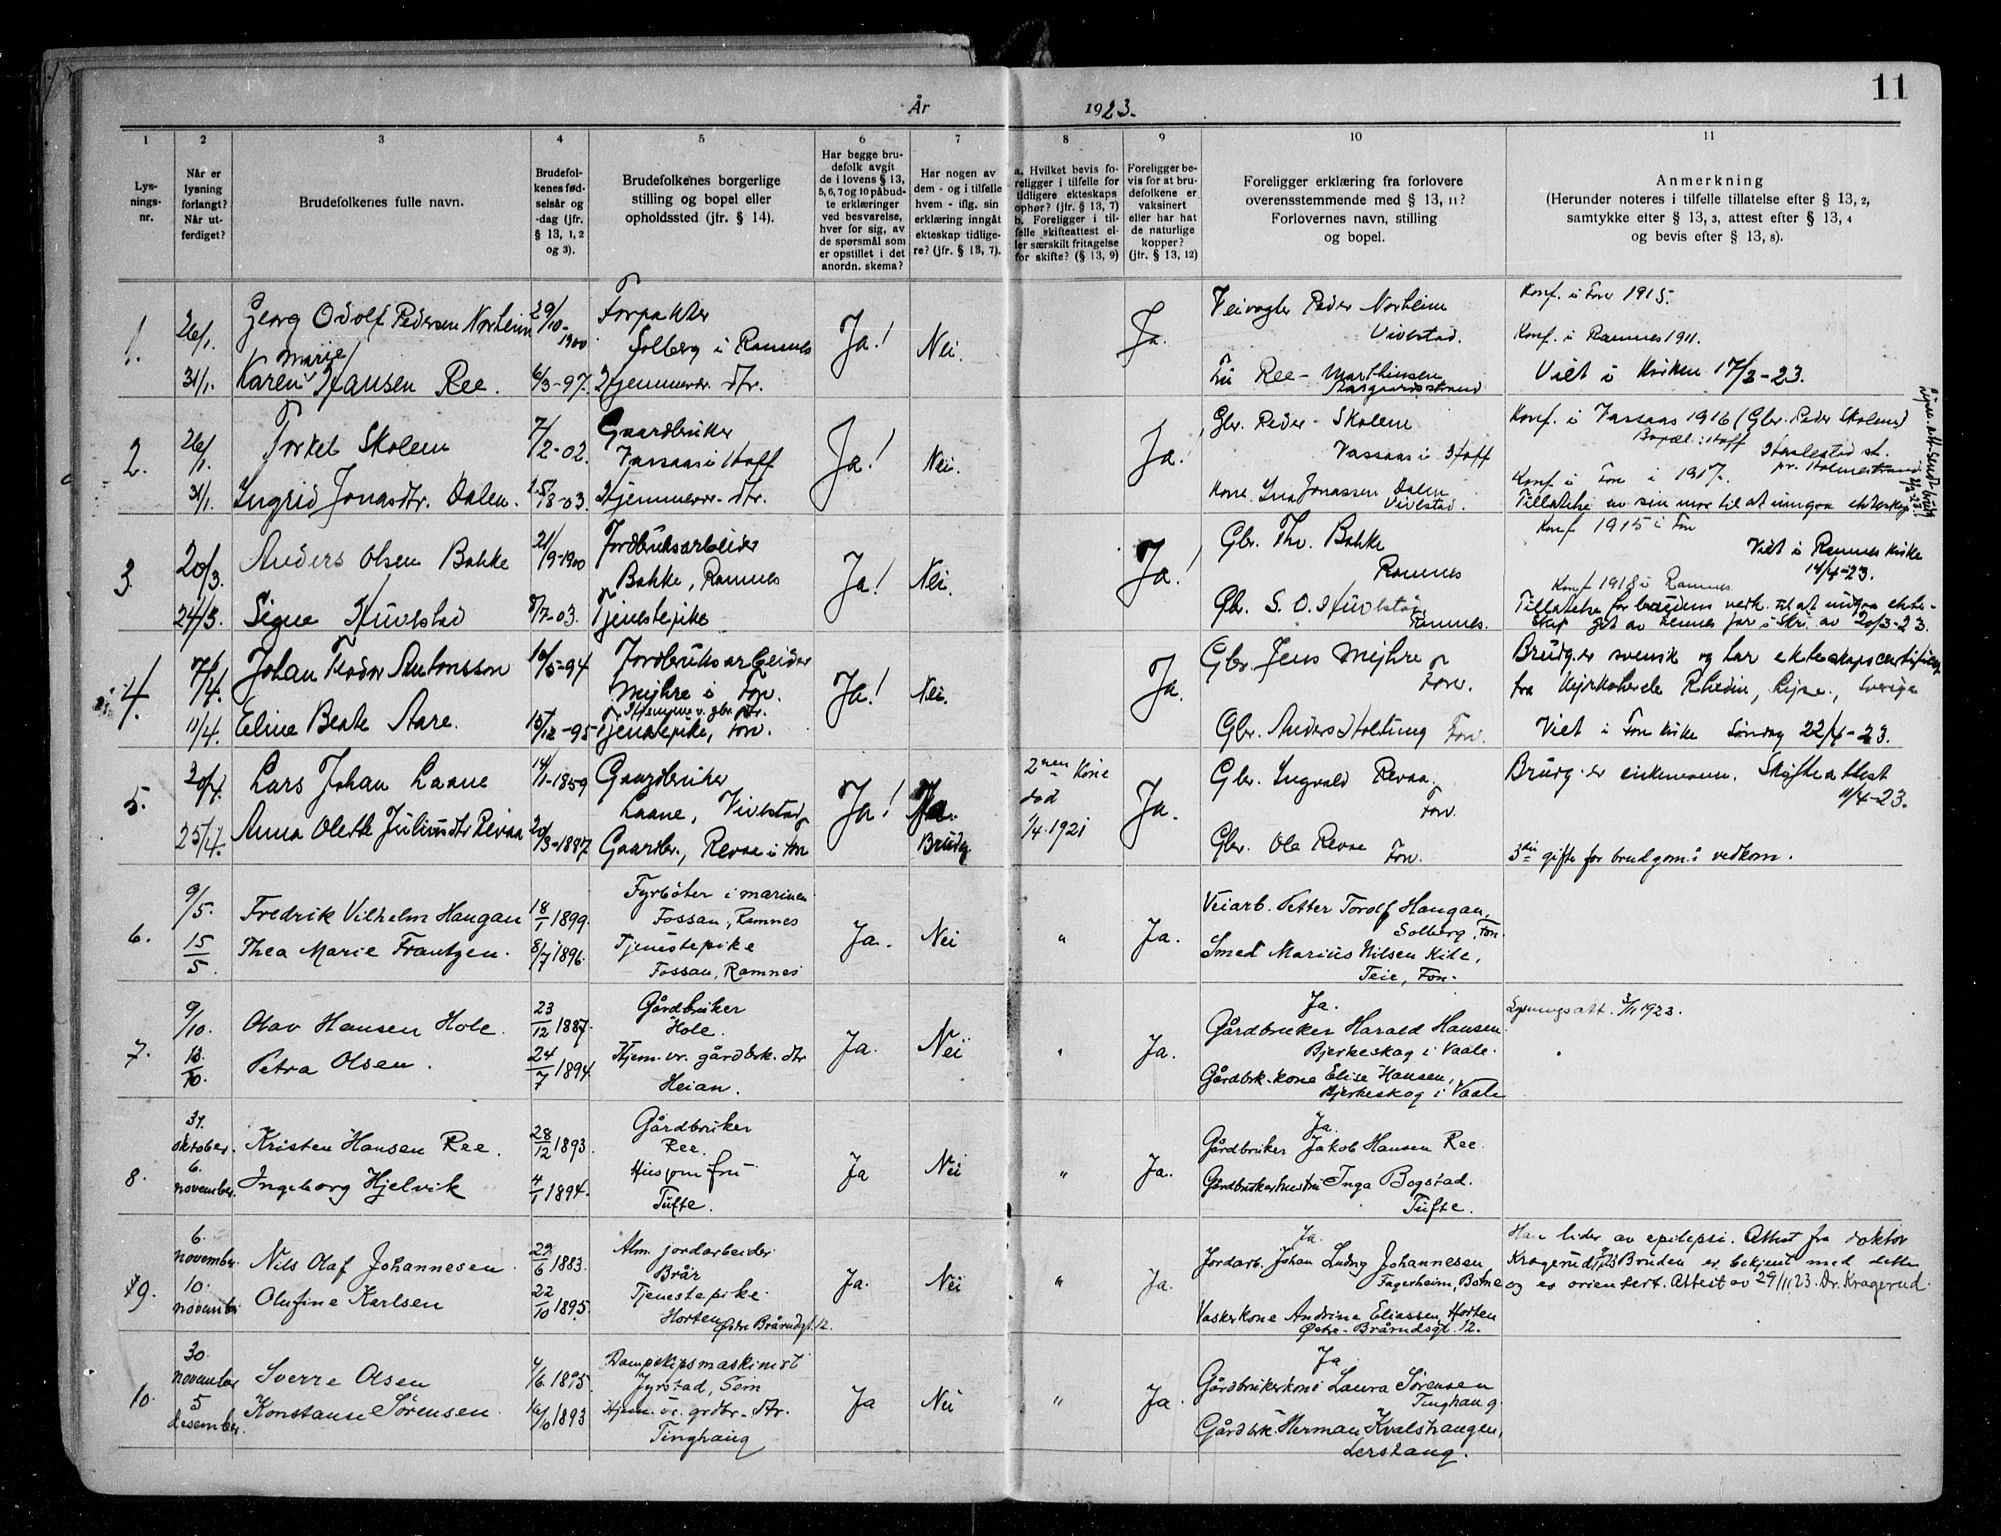 11
År 1923.
1
2
3
4
5
6
7
8
9
10
11
Lys-
nings-
nr.
Når er
lysning
forlangt?
Når ut-
ferdiget?
Brudefolkenes fulle navn.
Brudefol-
kenes fød-
selsår og
-dag (jfr.
§ 13, 1, 2
og 3).
Brudefolkenes borgerlige
stilling og bopel eller
opholdssted (jfr. § 14).
Har begge bru-
defolk avgit
de i lovens § 13,
5, 6, 7 og 10 påbud-
te erklæringer
ved besvarelse,
hver for sig, av
de spørsmål som
er opstillet i det
anordn. skema?
Har nogen av
dem - og i tilfelle
hvem - iflg. sin
erklæring inngåt
ekteskap tidlige-
re? (jfr. § 13, 7).
a. Hvilket bevis fo-
religger i tilfelle for
tidligere ekteskaps
ophør? (jfr. § 13, 7)
b. Foreligger i til-
felle skifteattest el-
ler særskilt fritagelse
for skifte? (§ 13, 9)
Foreligger be-
vis for at bru-
defolkene er
vaksinert
eller har hat
de naturlige
kopper?
(jfr. § 13, 12)
Foreligger erklæring fra forlovere
overensstemmende med § 13, 11?
Forlovernes navn, stilling
og bopel.
Anmerkning
(Herunder noteres i tilfelle tillatelse efter § 13, 2,
samtykke efter § 13, 3, attest efter § 13, 4
og bevis efter § 13, 8).
1.
26/1.
31/1.
Georg Odolf Pedersen Norheim
Marie
Karen Hansen Ree.
29/10-
1900
6/3-97.
Forpakter
Solberg i Ramnes
Hjemmevr. dtr.
Ja!
Nei.
Ja.
Veivogter Peder Norheim
Vivestad.
Fru Ree - Marthinsen
Aasgaardsstrand
Konf. i Fon 1915.
Konf. i Ramnes 1911.
Viet i Kirken 17/3-23.
2.
26/1.
31/1.
Torkel Skolem
Ingrid Jonasdtr. Dalen.
7/2-02.
/8-03.
Gaardbruker
Vassaas i Hoff
Hjemmevr. dtr.
Ja!
Nei.
Ja.
Gbr. Peder Skolem
Vassaas i Hoff
Kone Ina Jonassen Dalen
Vivestad.
Konf. i Vassaas 1916 (Gbr. Peder Skolem)
Bopæl: Hoff
pr. Holmestrand
Konf. i Fon i 1917.
Tillatelse av sin mor til at inngaa ekteskap
3.
20/3.
24/3.
Anders Olsen Bakke
Signe
21/9-1900
8/7-03.
Jordbruksarbeider
Bakke, Ramnes
Tjenestepike
Ja!
Nei.
Ja!
Gbr. Thv. Bakke
Ramnes
Gbr. S. O.
Ramnes.
Konf. 1915 i Fon
Viet i Ramnes kirke
14/4-23.
Konf 1918 i Ramnes
Tillatelse for brudens vedk. til at inngaa ekte-
skap git av hennes far i Skr. av 20/3-23.
4.
7/4.
11/4.
Johan Teodor Antonsson
Eline Beate Aare.
10/5-94
15/12-95
Jordbruksarbeider
Mejhre i Fon.
Hjemmev. gbr. dtr.
Tjenestepike, Fon.
Ja!
Nei.
Ja.
Gbr. Jens Mejhre
Fon.
Gbr. Anders Holtung Fon.
Brudg. er svensk og har ekteskapscertifikat
fra Kyrkoherde Rhedin, Sverige
Viet i Fon kirke Søndag 22/4-23.
5.
20/4.
25/4.
Lars Johan Laane
Anna Olette Juliusdtr Revaa
14/1-1859
20/3-1887.
Gaardbruker
Laane, Vivestad
Gaardbr., Revaa i Fon
Ja!
Ja.
Brudg
2nen Kone
død
1/4.1921
Ja.
Gbr. Ingvald Revaa.
Fon.
Gbr. Ole Revaa Fon.
Brudg. er enkemann. Skifteattest
11/4-23.
3die gifte for brudgom.s vedkom.
6.
9/5.
15/5.
Fredrik Vilhelm Haugan
Thea Marie Frantzen.
18/1 1899.
8/7 1896.
Fyrbøter i marinen
Fossan, Ramnes
Tjenestepike
Fossan, Ramnes
Ja.
Nei
"
Ja.
Veiarb. Petter Torolf Haugan,
Solberg, Fon.
Smed Marius Nilsen Kile,
Teie, Fon.
7.
9/10.
13/10.
Olav Hansen Hole.
Petra Olsen.
23/12 1887.
24/7 1894.
Gårdbruker
Hole.
Hjem. vr. gårdbrk. dtr
Heian.
Ja.
Nei
Ja.
Ja.
Gårdbruker Harald Hansen.
Bjerkeskog i Vaale.
Gårdbrk. kone Elise Hansen,
Bjerkeskog i Vaale
Lysningsatt. 3/11 1923.
8.
31.
oktober.
6.
november.
Kristen Hansen Ree.
Ingeborg Hjelvik
28/12 1893.
4/1 1894.
Gårdbruker
Ree.
Husjomfru
Tufte.
Ja
Nei
"
Ja.
Ja.
Gårdbruker Jakob Hansen Ree.
Gårdbrukerhustru Inga Bogstad.
Tufte.
9.
6.
november.
10.
november
Nils Olaf Johannesen.
Olufine Karlsen
29/6 1883.
22/10 1895.
Alm. jordarbeider
Brår
Tjenestepike.
Horten, Østre Brårudgt. 12.
Ja.
Nei
"
Ja.
Ja.
Jordarb. Johan Ludvig Johannesen
Fagerheim, Botne
Vaskerkone Andrine Eliassen, Horten
Østre Brårudsgt. 12.
Han lider av epilepsi. Attest fra doktor
Kragerud. Bruden er bekjent med dette
og er orientert. Attest av 29/11 23. Dr. Kragerud.
10.
30.
november
5
desember.
Sverre Olsen
Konstanse Sørensen.
4/6. 1895.
16/10 1893
Dampskipsmaskinist
Jyrstad, Sem
Hjem. vr. grdbr. dtr.
Tinghaug
Ja
Nei
"
Ja.
Ja
Gårdbrukerkone Laura Sørensen
Tinghaug.
Gårdbrk. Herman Kvalshaugen,
Lershaug.